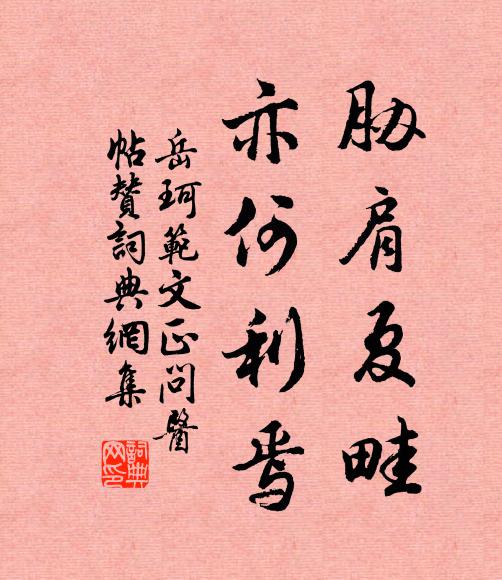 胁肩夏畦
亦何利焉
岳珂範文正問醫
帖贊詞典網集
詞典网印